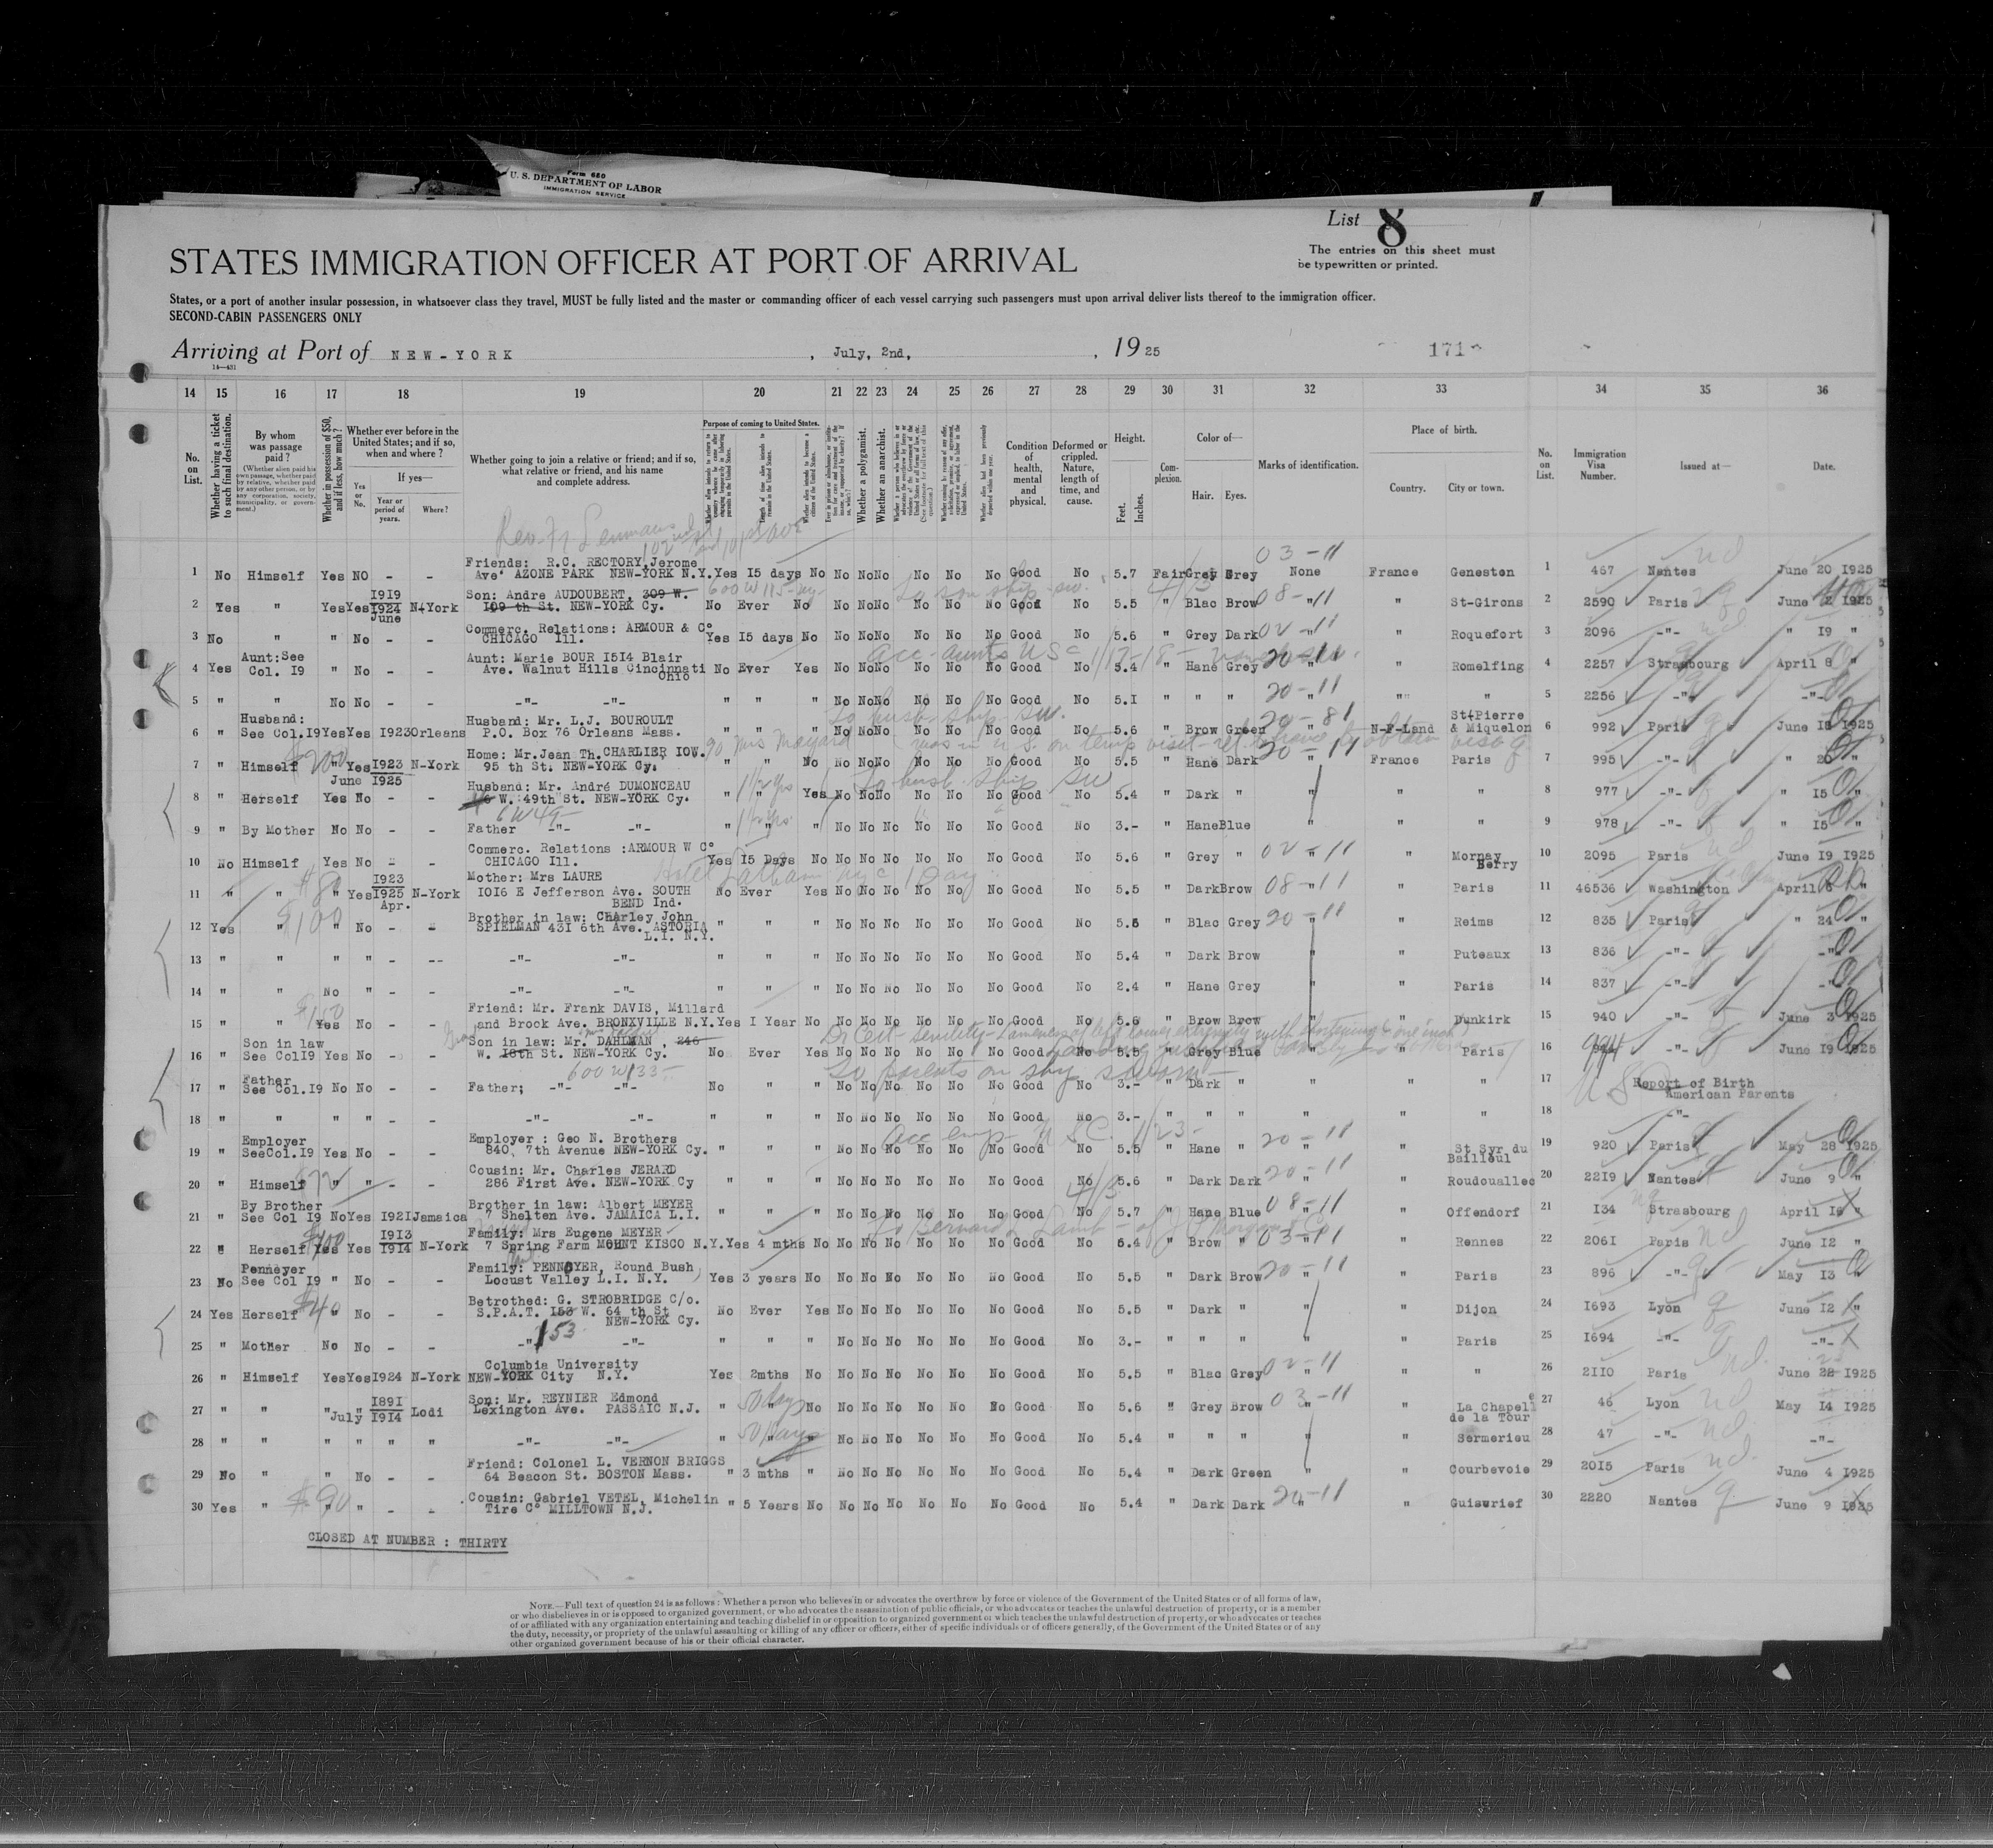 Form 680
U. S. DEPARTMENT OF LABOR
IMMIGRATION SERVICE
List 8
The entries on this sheet must
be typewritten or printed.
STATES IMMIGRATION OFFICER AT PORT OF ARRIVAL
States, or a port of another insular possession, in whatsoever class they travel, MUST be fully listed and the master or commanding officer of each vessel carrying such passengers must upon arrival deliver lists thereof to the immigration officer.
SECOND-CABIN PASSENGERS ONLY
Arriving at Port of NEW-YORK , July, 2nd, , 1925 171
14—431
14 15 16 17 18 19 20 21 22 23 24 25 26 27 28 29 30 31 32 33 34 35 36
No. on List.
Whether having a ticket to such final destination.
By whom was passage paid?
(Whether alien paid his own passage, whether paid by relative, whether paid by any other person, or by any corporation, society, municipality, or government.)
Whether in possession of $50, and if less, how much?
Whether ever before in the United States; and if so, when and where?
Yes or No.
If yes—
Year or period of years.
Where?
Whether going to join a relative or friend; and if so, what relative or friend, and his name and complete address.
Purpose of coming to United States.
Length of time alien intends to remain in the United States.
Whether a polygamist.
Whether an anarchist.
Condition of health, mental and physical.
Deformed or crippled. Nature, length of time, and cause.
Height.
Feet. Inches.
Complexion.
Color of—
Hair. Eyes.
Marks of identification.
Place of birth.
Country. City or town.
No. on List.
Immigration Visa Number.
Issued at—
Date.
03-11
Friends: R.C. RECTORY, Jerome
1 No Himself Yes NO - - Ave' AZONE PARK NEW-YORK N.Y. Yes 15 days No No No No No No No Good No 5.7 Fair Grey Grey None France Geneston 1 467 Nantes June 20 1925
1919 Son: Andre AUDOUBERT, 309 W. 600 W 115- To son ship sw.
2 Yes " Yes Yes 1924 N-York 109 th St. NEW-YORK Cy. No Ever No No No No No No No Good No 5.5 " Blac Brow 08-11 " " St-Girons 2 2590 Paris June 2 1925
June
Commerc. Relations: ARMOUR & C°
3 No " " No - - CHICAGO Ill. Yes 15 days No No No No No No No Good No 5.6 " Grey Dark 02-11 " " Roquefort 3 2096 -"- " 19 "
Aunt:See Aunt: Marie BOUR 1514 Blair
4 Yes Col. 19 " No - - Ave. Walnut Hills Cincinnati No Ever Yes No No No No No No Good No 5.4 " Hane Grey 20-11 " " Romelfing 4 2257 Strasbourg April 8 "
Ohio
5 " " No No - - -"- -"- " " " No No No No No No Good No 5.1 " " " 20-11 " " " 5 2256 -"- -"-
Husband: Husband: Mr. L.J. BOUROULT To husb. ship sw. 20-81 St-Pierre
6 " See Col.19 Yes Yes 1923 Orleans P.O. Box 76 Orleans Mass. " " " No No No No No No Good No 5.6 " Brow Green " N-F-Land & Miquelon 6 992 Paris June 18 1925
$200 Home: Mr.Jean Th.CHARLIER IOW.
7 " Himself " Yes 1923 N-York 95 th St. NEW-YORK Cy. " " No No No No No No No Good No 5.5 " Hane Dark 20-11 France Paris 7 995 -"- " 20 "
June 1925
Husband: Mr. André DUMONCEAU To husb. ship sw
8 " Herself Yes No - - W. 49th St. NEW-YORK Cy. " " Yes No No No No No No Good No 5.4 " Dark " " " " 8 977 -"- " 15 "
6 W 49-
9 " By Mother No No - - Father -"- -"- " " " No No No No No No Good No 3.- " Hane Blue " " " 9 978 -"- " 15 "
Commerc. Relations :ARMOUR W C°
10 No Himself Yes No - - CHICAGO Ill. Yes 15 Days No No No No No No No Good No 5.6 " Grey " 02-11 " Mornay Berry 10 2095 Paris June 19 1925
$80 1923 Mother: Mrs LAURE Hotel Latham nyc 1 Day
11 " " " Yes 1925 N-York 1016 E Jefferson Ave. SOUTH No Ever Yes No No No No No No Good No 5.5 " Dark Brow 08-11 " Paris 11 46536 Washington April 8 "
Apr. BEND Ind.
$100 Brother in law: Charley John
12 Yes " " No - - SPIELMAN 431 6th Ave. ASTORIA " " " No No No No No No Good No 5.6 " Blac Grey 20-11 " " Reims 12 835 Paris " 24 "
L.I. N.Y.
13 " " " " - -- -"- -"- " " " No No No No No No Good No 5.4 " Dark Brow " Puteaux 13 836 -"- -"-
14 " " No " - - -"- -"- " " " No No No No No No Good No 2.4 " Hane Grey " " Paris 14 837 -"- -"-
$150 Friend: Mr. Frank DAVIS, Millard
15 " " Yes No - - and Brock Ave. BRONXVILLE N.Y. Yes 1 Year No No No No No No No Good No 5.6 " Brow Brow " " Dunkirk 15 940 -"- June 3 1925
Dr Cert - Senility - Lameness of left lower extremity with shortening
Son in law Son in law: Mr. DAHLMAN , 246
16 " See Col19 Yes No - - W. 18th St. NEW-YORK Cy. No Ever Yes No No No No No No Good No 5.5 " Grey Blue " " Paris 16 994 -"- June 19 1925
600 W 133- To parents on
Father
17 " See Col.19 No No - - Father; -"- -"- No " " No No No No No No Good No 3.- " Dark " " " " 17 U S Report of Birth
American Parents
18 " -"- -"- " " " No No No No No No Good No 3.- " " " " " " 18 -"-
Employer Employer : Geo N. Brothers U S C. 1/23-
19 " SeeCol.19 Yes No - - 840, 7th Avenue NEW-YORK Cy. " " " No No No No No No Good No 5.5 " Hane " 20-11 " St Syr du Bailloul 19 920 Paris May 28 1925
Cousin: Mr. Charles JERARD
20 " Himself " " - - 286 First Ave. NEW-YORK Cy " " " No No No No No No Good No 5.6 " Dark Dark 20-11 " Roudouallec 20 2219 Nantes June 9 "
By Brother Brother in law: Albert MEYER 4/13
21 " See Col 19 No Yes 1921 Jamaica 7 Shelten Ave. JAMAICA L.I. " " " No No No No No No Good No 5.7 " Hane Blue 08-11 " " Offendorf 21 134 Strasbourg April 16 "
$700 1913 Family: Mrs Eugene MEYER To Bernard Lamb - of J P Morgan & Co
22 " Herself Yes Yes 1914 N-York 7 Spring Farm MOUNT KISCO N.Y. Yes 4 mths No No No No No No No Good No 5.4 " Brow " 03-11 " Rennes 22 2061 Paris June 12 "
Pennoyer Family: PENNOYER, Round Bush
23 No See Col 19 " No - - Locust Valley L.I. N.Y. Yes 3 years No No No No No No No Good No 5.5 " Dark Brow 20-11 " " Paris 23 896 -"- May 13 "
$40 Betrothed: G. STROBRIDGE C/o.
24 Yes Herself " No - - S.P.A.T. 153 W. 64 th St No Ever Yes No No No No No No Good No 5.5 " Dark " " " Dijon 24 1693 Lyon June 12 "
NEW-YORK Cy.
153
25 " Mother No No - - -"- -"- " " " No No No No No No Good No 3.- " " " " " Paris 25 1694 -"- -"-
Columbia University
26 " Himself Yes Yes 1924 N-York NEW-YORK City N.Y. Yes 2mths No No No No No No No Good No 5.5 " Blac Grey 02-11 " " " 26 2110 Paris June 22 1925
1891 Son: Mr. REYNIER Edmond 50 days
27 " " " July 1914 Lodi Lexington Ave. PASSAIC N.J. " " No No No No No No No Good No 5.6 " Grey Brow 03-11 " " La Chapelle de la Tour 27 46 Lyon May 14 1925
50 days
28 " " " " " " -"- -"- " No No No No No No Good No 5.4 " " " " Sermerieu 28 47 -"- -"-
Friend: Colonel L. VERNON BRIGGS
29 No " " No - - 64 Beacon St. BOSTON Mass. " 3 mths " No No No No No No Good No 5.4 " Dark Green " " Courbevoie 29 2015 Paris June 4 1925
$90 Cousin: Gabriel VETEL, Michelin
30 Yes " " " - - Tire C° MILLTOWN N.J. " 5 Years No No No No No No No Good No 5.4 " Dark Dark 20-11 " " Guiscrief 30 2220 Nantes June 9 1925
CLOSED AT NUMBER : THIRTY
NOTE.—Full text of question 24 is as follows: Whether a person who believes in or advocates the overthrow by force or violence of the Government of the United States or of all forms of law,
or who disbelieves in or is opposed to organized government, or who advocates the assassination of public officials, or who advocates or teaches the unlawful destruction of property, or is a member
of or affiliated with any organization entertaining and teaching disbelief in or opposition to organized government or which teaches the unlawful destruction of property, or who advocates or teaches
the duty, necessity, or propriety of the unlawful assaulting or killing of any officer or officers, either of specific individuals or of officers generally, of the Government of the United States or of any
other organized government because of his or their official character.